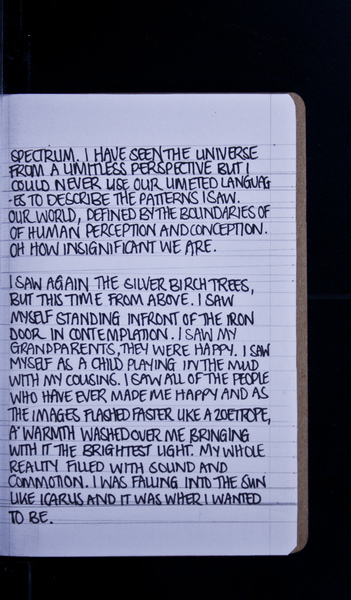 SPECTRUM. I HAVE SEEN THE UNIVERSE
FROM A LIMITLESS PERSPECTIVE BUT I
COULD NEVER USE OUR LIMETED LANGUAG
-ES TO DESCRIBE THE PATTERNS I SAW.
OUR WORLD, DEFINED BY THE BOUNDARIES OF
OF HUMAN PERCEPTION AND CONCEPTION.
OH HOW INSIGNIFICANT WE ARE.
I SAW AGAIN THE SILVER BIRCH TREES,
BUT THIS TIME FROM ABOVE. I SAW
MYSELF STANDING INFRONT OF THE IRON
DOOR IN CONTEMPLATION. I SAW MY
GRANDPARENTS, THEY WERE HAPPY. I SAW
MYSELF AS A CHILD PLAYING IN THE MUD
WITH MY COUSINS. I SAW ALL OF THE PEOPLE
WHO HAVE EVER MADE ME HAPPY AND AS
THE IMAGES FLASHED FASTER LIKE A ZOETROPE,
A WARMTH WASHED OVER ME BRINGING
WITH IT THE BRIGHTEST LIGHT. MY WHOLE
REALITY FILLED WITH SOUND AND
COMMOTION. I WAS FALLING INTO THE SUN
LIKE ICARUS AND IT WAS WHER I WANTED
TO BE.